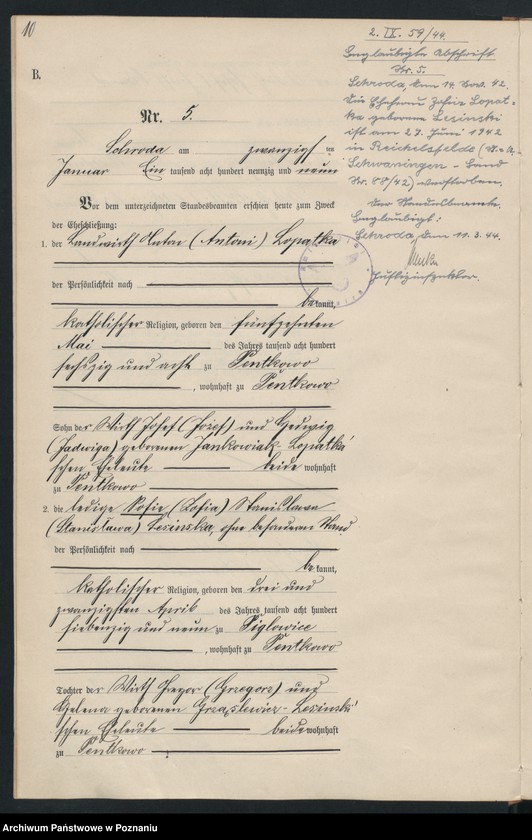 10
B.
2. IX. 59/44.
Beglaubigte Abschrift
Nr. 5.
Schroda, den 14. Nov. 42.
Die Ehefrau Zofia Lopat-
ka geborene Lesinski
ist am 27. Juni 1942
in Reichelsfelde
Schwaningen - Land
Nr. 88/42) verstorben.
Der Standesbeamte.
Beglaubigt:
Schroda, den 11. 3. 44.
Justizinspektor.
Nr. 5.
Schroda am zwanzigsten
Januar Ein tausend acht hundert neunzig und neun
Vor dem unterzeichneten Standesbeamten erschien heute zum Zweck
der Eheschließung:
1. der Landwirth Anton (Antoni) Lopatka
der Persönlichkeit nach
bekannt,
katholischer Religion, geboren den fünfzehnten
Mai des Jahres tausend acht hundert
sechszig und acht zu Pentkowo
, wohnhaft zu Pentkowo
Sohn der Wirth Josef (Józef) und Hedwig
(Jadwiga) geborenen Jankowiak Lopatka'
schen Eheleute beide wohnhaft
zu Pentkowo
2. die ledige Sofie (Zofia) Stanislawa
(Stanisława) Lesinska, ohne besonderen Stand
der Persönlichkeit nach
bekannt,
katholischer Religion, geboren den drei und
zwanzigsten April des Jahres tausend acht hundert
siebenzig und neun zu Piglowice
, wohnhaft zu Pentkowo
Tochter der Wirth Gregor (Grzegorz) und
Helena geborenen Grzaslewicz - Lesinski'
schen Eheleute beide wohnhaft
zu Pentkowo
Archiwum Państwowe w Poznaniu